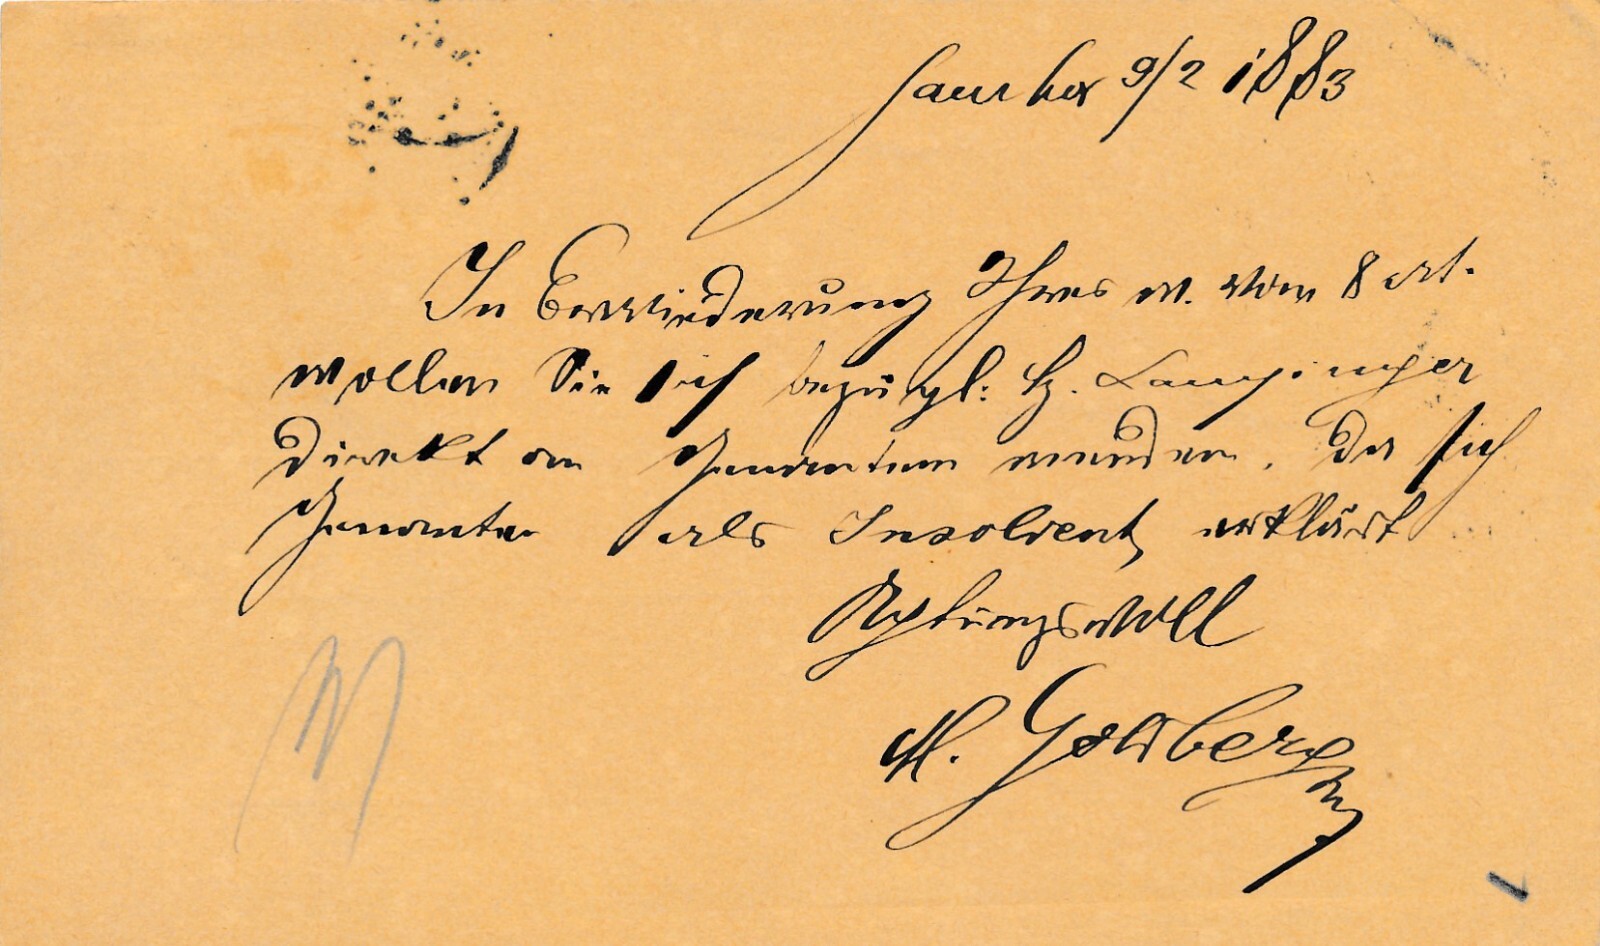 9/2 1883
In Erwiederung Ihres w. vom 8 crt.
wollen Sie sich bezügl: H.
direkt an Genanten wenden. Da sich
Genanter als Insolvent erklärt
Achtungsvoll
M. Goldberg